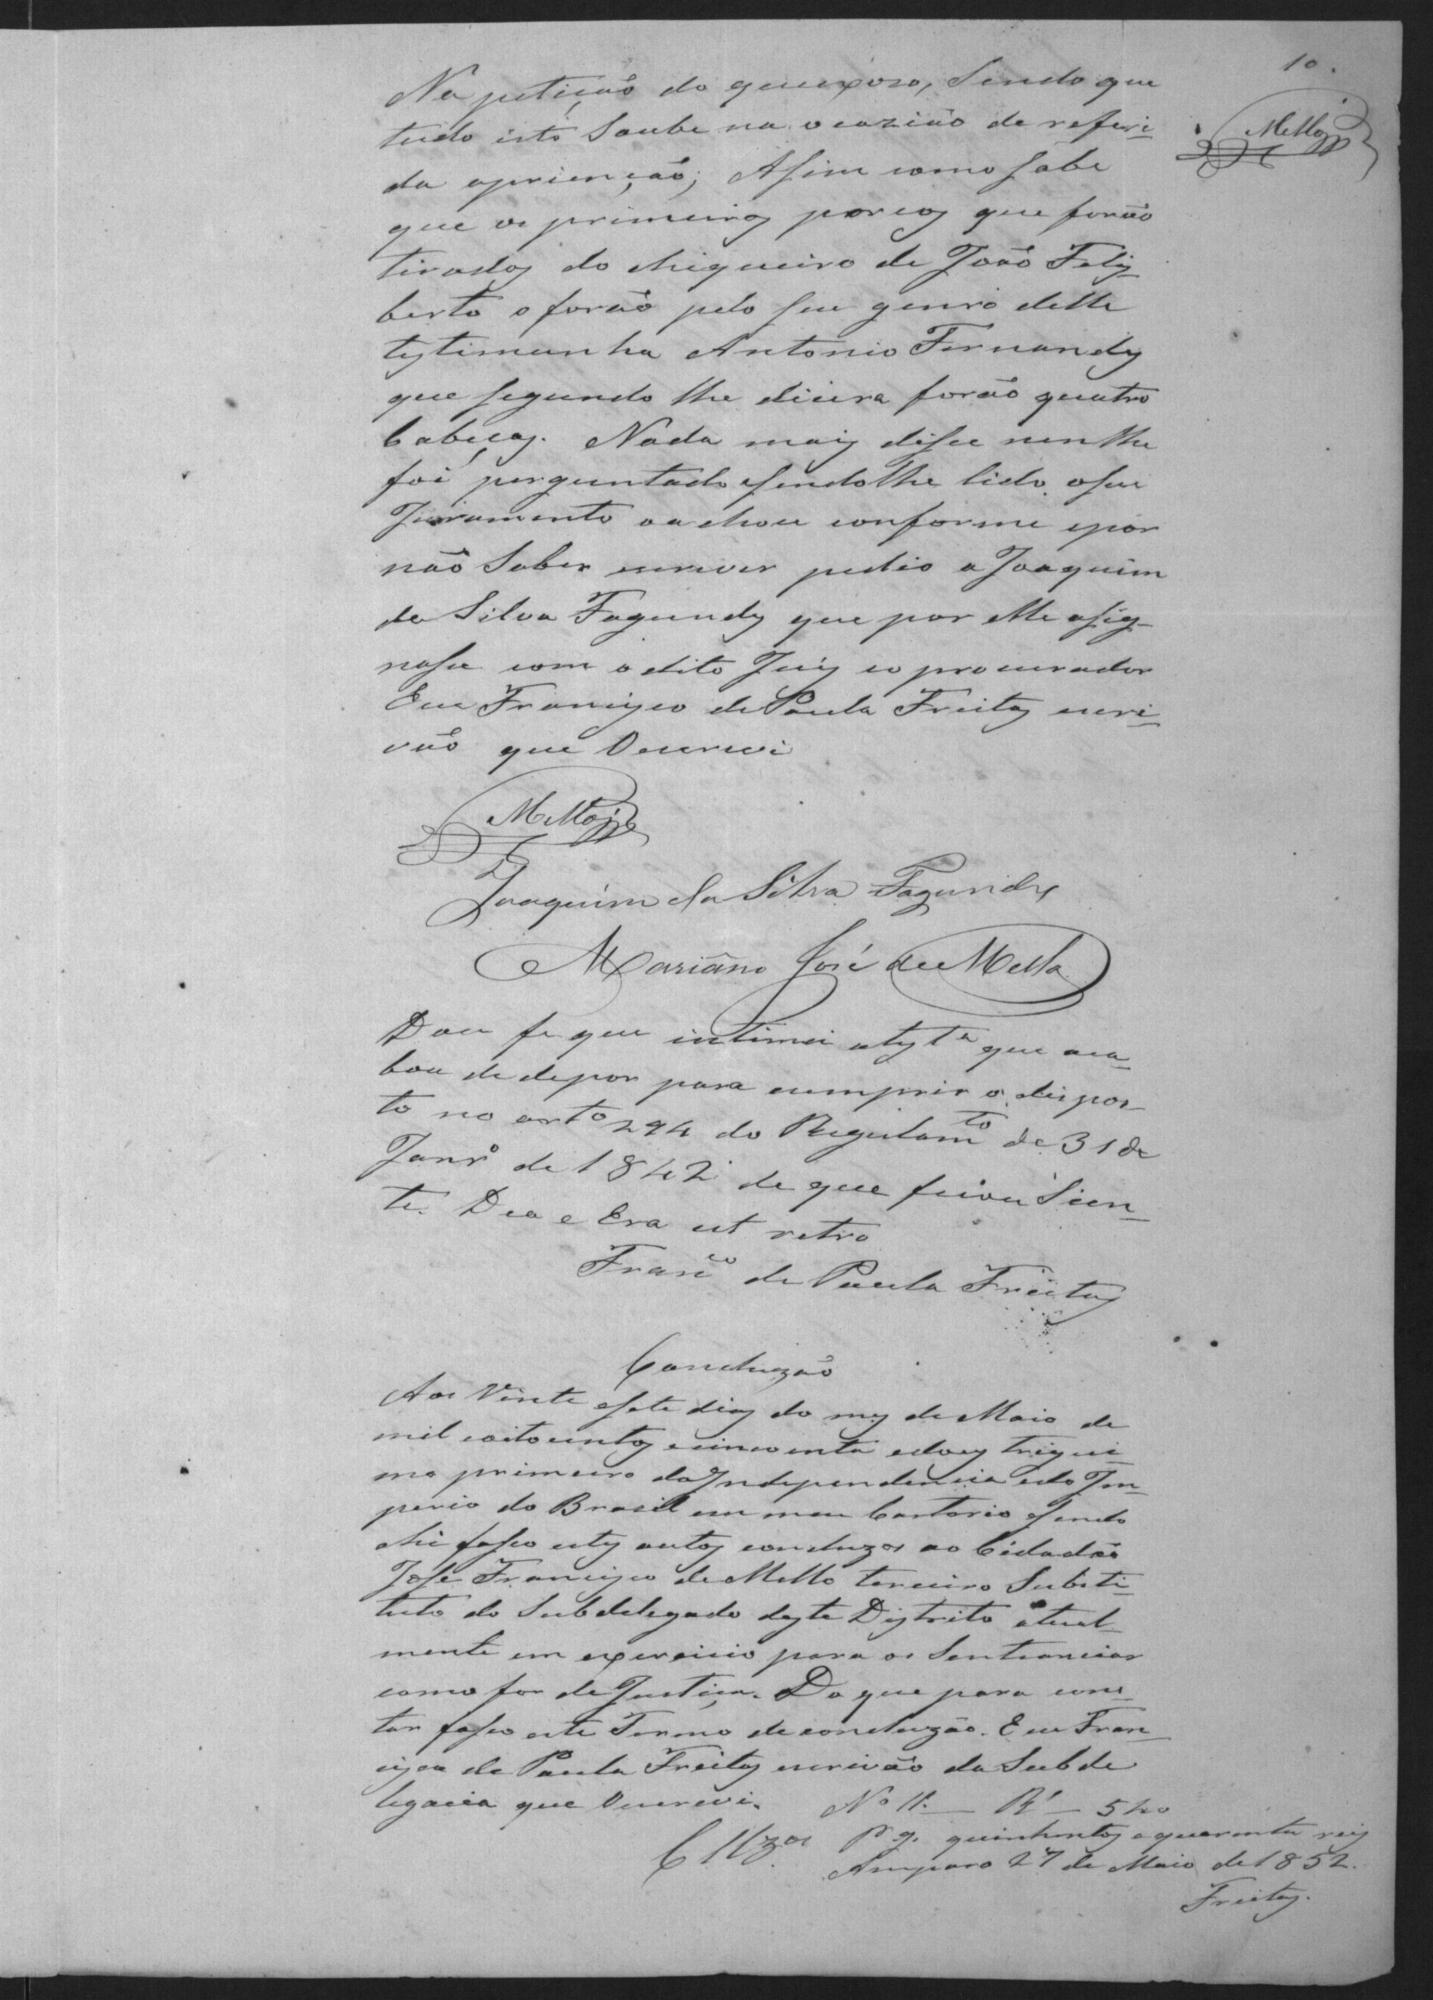 10.
Mello
Na petição do queixoso, Sendo que
tudo isto Soube na ocazião de referi-
da aprienção; Asim como sabe
que os primeiros porcos que forão
tirados do chiqueiro de João Felis-
berto o forão pelo seu genro delle
testimunha Antonio Fernandes
que segundo lhe dicera forão quatro
Cabeças. Nada mais disse nem lhe
foi perguntado e sendo lhe lido o seu
Juramento o achou conforme e por
não Saber escrever pedio a Joaquim
da Silva Fagundes que por elle asig-
nase com o dito Juis e o procurador
Eu Francisco de Paula Freitas escri-
vão que Oescrevi
Mello
Joaquim da Silva Fagundes
Mariano José de Mello
Dou fe que intimei a test.ª que aca-
bou de depor para cumprir o dispos-
to no art.º 294 do Regulam.to de 31 de
Janr.º de 1842 de que ficou Sien-
te. Dia e Era ut retro
Fran.co de Paula Freitas
Concluzão
Aos Vinte e sete dias do mes de Maio de
mil e oitocentos e cincoenta e dois trigeci-
mo primeiro da Independencia e do Im-
perio do Brasil em meu Cartorio e sendo
ahi faso estes autos concluzos ao Cidadão
José Francisco de Mello terceiro Substi-
tuto do Subdelegado deste Distrito atual-
mente em exercicio para os Sentenciar
como for de Justiça. Do que para cons-
tar faso este Termo de concluzão. Eu Fran-
cisco de Paula Freitas escrivão da Subde
legacia que Oescrevi.
Nº 11. — R.s — 540
Clzos
Pg. quinhentos e quarenta reis
Amparo 27 de Maio de 1852.
Freitas.